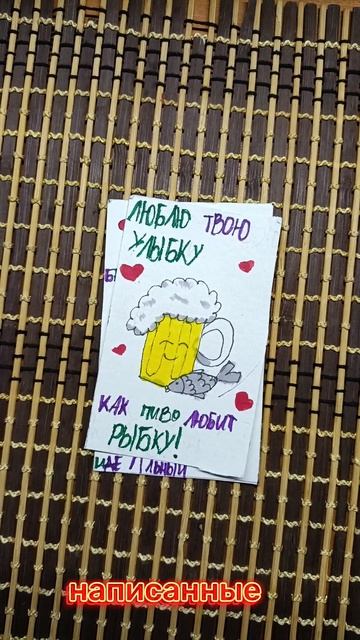 ЛЮБЛЮ ТВОЮ
УЛЫБКУ
КАК ПИВО ЛЮБИТ
РЫБКУ!
написанные